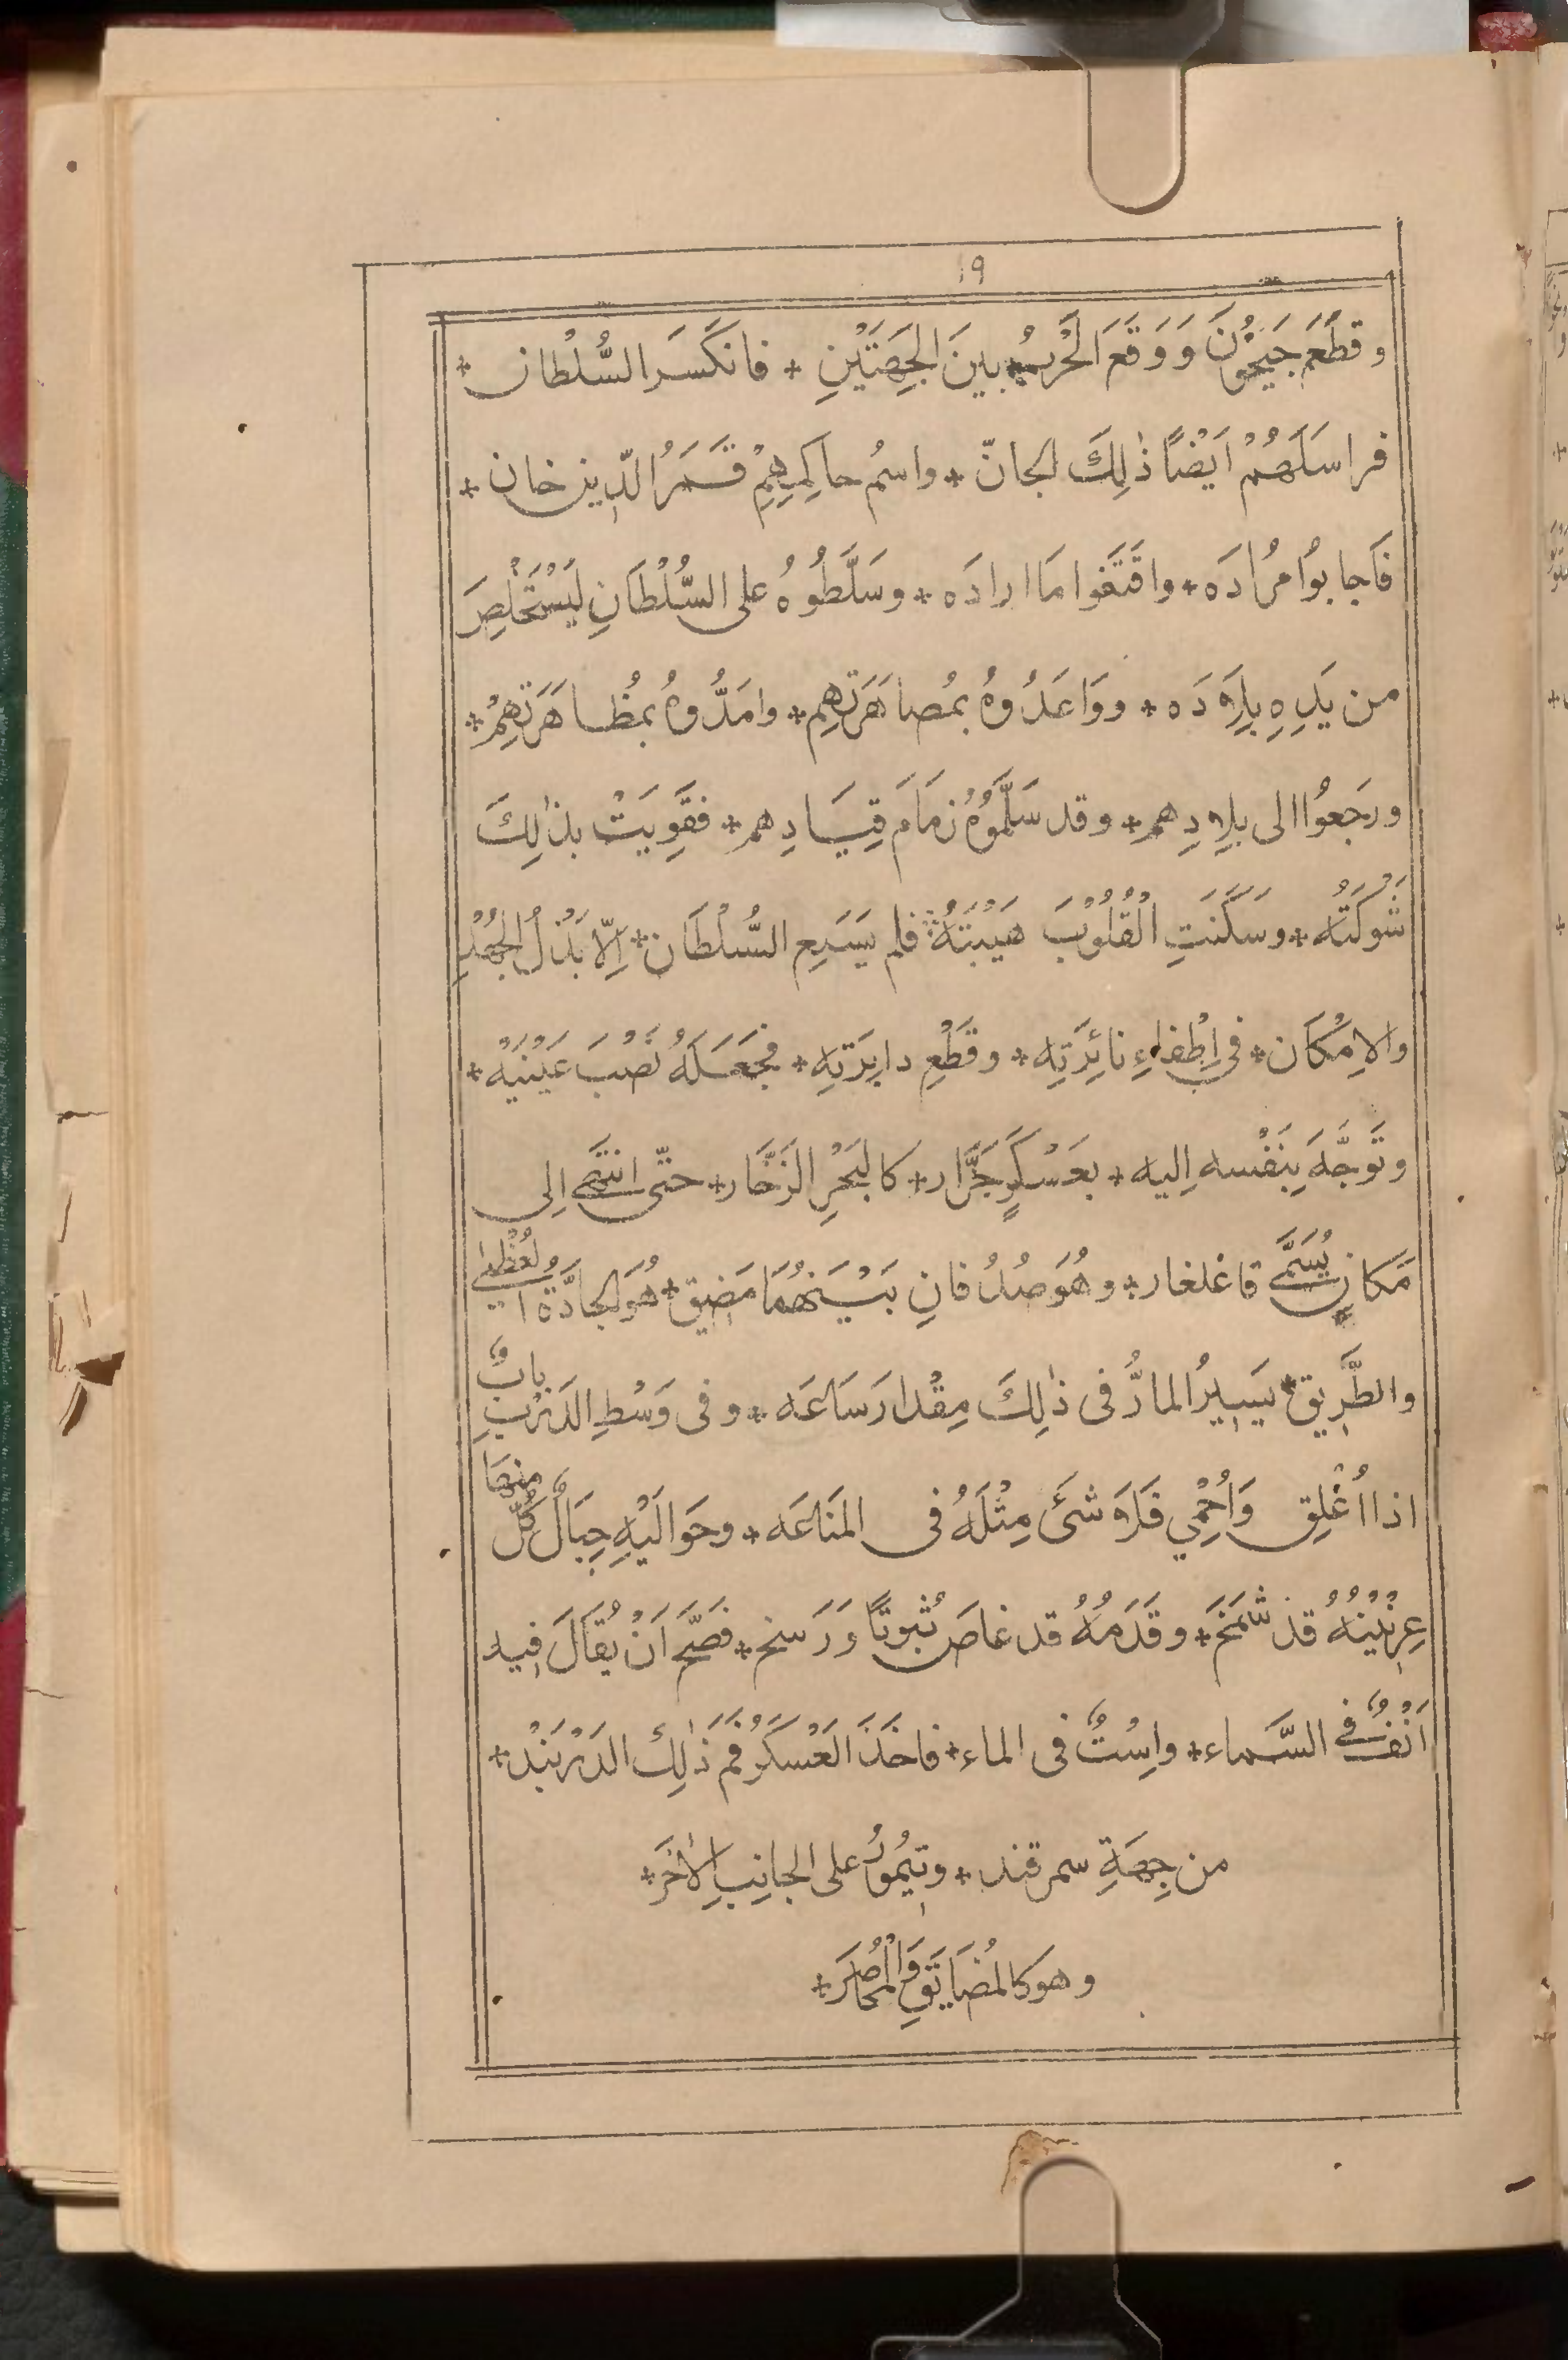 19
وقَطَعَ جَيْحُوْنَ وَوَقَعَ الحَرْبُ بينَ الجِهَتَيْنِ * فانكَسَرَ السُّلْطان *
فراسَلَهُمْ اَيْضاً ذٰلِكَ الجانّ * واسمُ حاكِمِهِمْ قَمَرُ الدّين خان *
فَاَجابُوا مُرادَه * واقتَفَوا مَا ارادَه * وسَلَّطُوهُ على السُّلْطَانِ ليَسْتَخْلِصَ
من يَدِهِ بِلَادَه * ووَاعَدُوهُ بمُصاهَرَتِهِم * وامَدُّوهُ بمُظاهَرَتِهِمْ *
ورجَعوُا الى بلادِهم * وقد سَلَّمُوهُ زمَامَ قِيَادِهم * فقَوِيَتْ بذٰلِكَ
شَوْكَتُه * وسَكَنَتِ الْقُلُوْبَ هَيْبَتُهُ فلم يَسَعِ السُّلْطَان * اِلّا بَذْلُ الجُهْدِ
والاِمْكَان * فى اِطْفاءِ نائِرَتِه * وقَطْعِ دايِرَتِه * فجَعَلَهُ نَصْبَ عَيْنَيْه *
وتَوجَّهَ بِنَفْسه اِليه * بعَسْكَرٍ جَرَّار * كالبَحْرِ الزَخَّار * حتّى انتَهى الى
مَكانٍ يُسَمَّى قاغلغار * وهُوَ صُدُفانِ بَيْنَهُمَا مَضِيق * هُوَ الجادَّةُ العُظْمىٰ
والطَّرِيق * يَسِيرُ المارُّ فى ذٰلِكَ مِقْدارَ سَاعَه * وفى وَسْطِ الدَرْبِ بابٌ
اذا اُغْلِق وَاُحْمِي فَلَا شَىَ مِثْلَهُ فى المَنَاعَه * وحَوَالَيْهِ جِبَالٌ كُلٌّ منهَا
عِرْنِيْنُهُ قد شَمَخَ * وقَدَمُهُ قد غاصَ ثُبوتاً وَرَسَخ * فصَحَّ اَنْ يُقَالَ فيه
اَنْفٌ فى السَّماء * واِسْتٌ فى الماء * فاخَذَ العَسْكَرُ فَمَ ذٰلِكَ الدَرْبَنْد *
من جِهَةِ سمرقند * وتِيْمُورُ على الجانِبِ الاٰخَر *
وهو كالمُضَايَقِ وَالْمُحَاصَر *